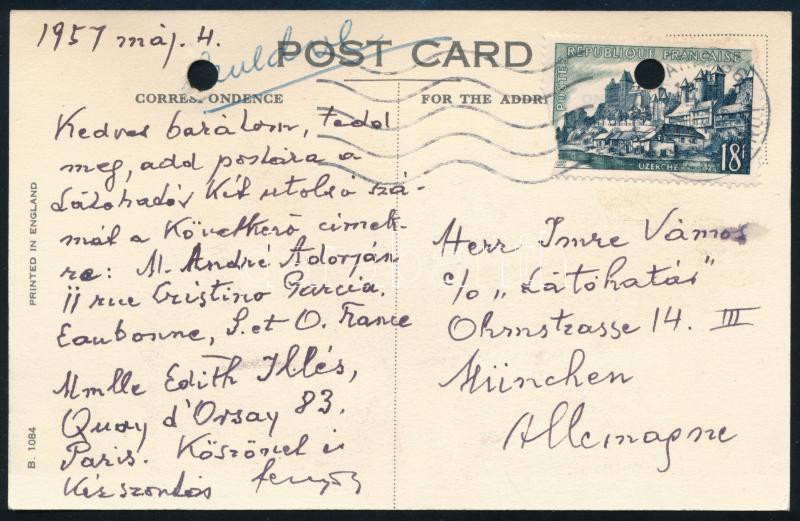 1957 máj. 4.
POST CARD
CORRESPONDENCE
FOR THE ADDR
POSTES
REPUBLIQUE FRANÇAISE
UZERCHE
18f
Kedves barátom, tedd
meg, add postára a
Látóhatár két utolsó szá-
mát a következő címek-
re: M. André Adorján
11 rue Cristino Garcia.
Eaubonne, S. et O. France
Mmlle Edith Illés,
Quay d'Orsay 83.
Paris. Köszönet és
kézszorítás
Herr Imre Vámos
c/o „Látóhatár"
Ohmstrasse 14. III
München
Allemagne
PRINTED IN ENGLAND
B. 1084